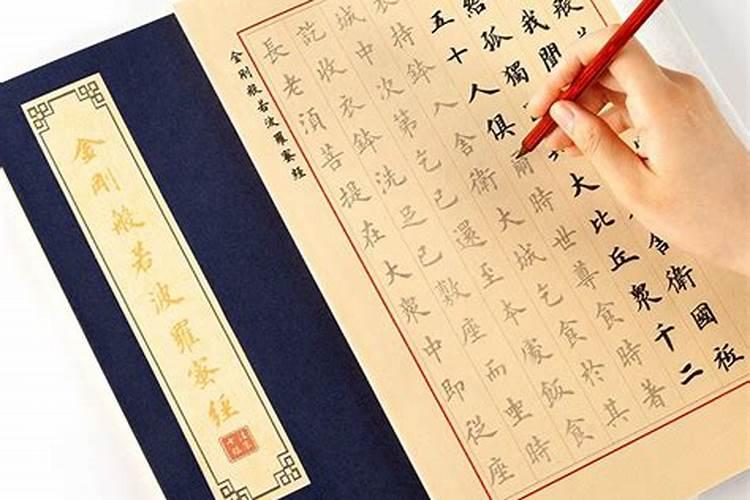 般
我聞舍衛國祇
給孤獨大比丘眾千二
五十人俱爾時世尊食時著
衣持鉢入舍衛大城乞食於其
城中次第乞已還至本處飯食
訖收衣鉢洗足已敷座而坐時
長老須菩提在大眾中即從座
金剛般若波羅蜜經
金剛般若波羅蜜經